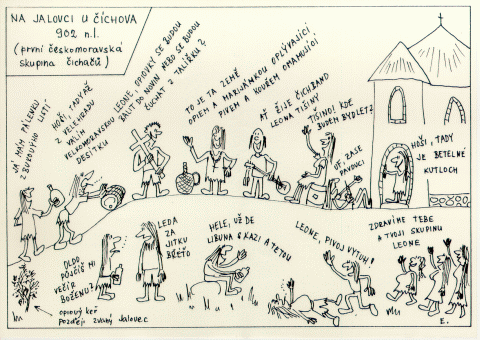 NA JALOVCI U ČÍCHOVA
902 n.l.
(první českomoravská
skupina čichačů)
JÁ MÁM PÁLENKU
Z BUKOVÝHO LISTÍ
HOŠI, TADY JÁ
Z VELEHRADU
VALÍM
VELKOMORAVSKOU
DESÍTKU
LEONE, OPIOVKY SE BUDOU
BALIT DO NOVIN NEBO SE BUDOU
ČUCHAT Z TALÍŘKU?
TO JE TA ZEMĚ
OPIEM A MARJÁNKOU OPLÝVAJÍCÍ
PIVEM A KOUŘEM OMAMUJÍCÍ
AŤ ŽIJE ČICHBAND
LEONA TIŠINY
TIŠINO! KDE
BUDEM BYDLET?
JE, ZASE
PAVOUCI
HOŠI, TADY
JE BETELNÉ
KUTLOCH
OLDO
PŮJČÍŠ MI
VEČÍR
BOŽENU?
LEDA
ZA
JITKU
BŘÉŤO
HELE, UŽ DE
LIBUNA S KAZI A TETOU
LEONE, PIVOJ VYTUH!
ZDRAVÍME TEBE
A TVOJI SKUPINU
LEONE
opiový keř
později zvaný Jalovec
E.